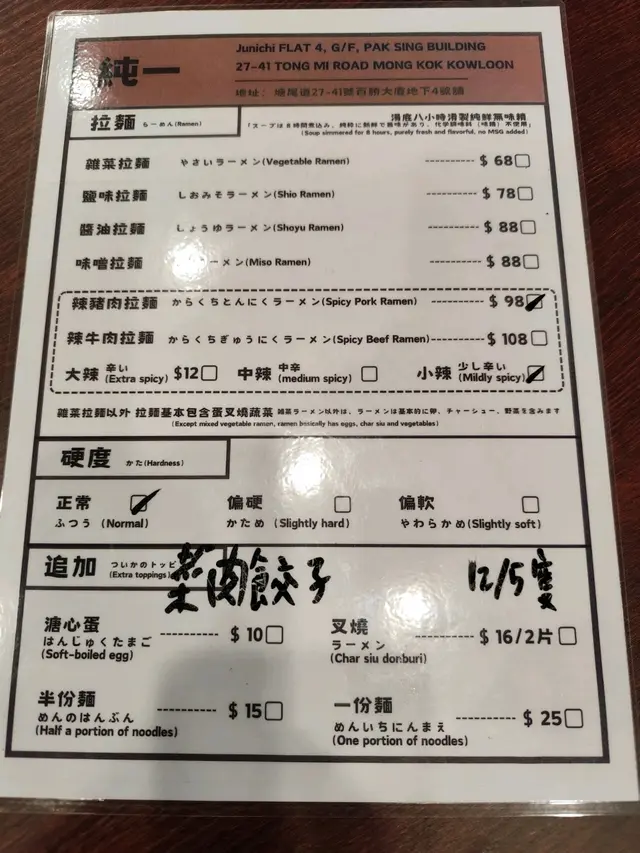 純一
Junichi FLAT 4, G/F, PAK SING BUILDING
27-41 TONG MI ROAD MONG KOK KOWLOON
地址：塘尾道27-41號百勝大廈地下4號舖
拉麵 らーめん(Ramen)
湯底八小時滑製純鮮無味精
「スープは8時間煮込み、純粋に新鮮で風味があり、化学調味料（味精）不使用」
(Soup simmered for 8 hours, purely fresh and flavorful, no MSG added)
雜菜拉麵 やさいラーメン(Vegetable Ramen) ---------- $ 68
鹽味拉麵 しおみそラーメン(Shio Ramen) ---------- $ 78
醬油拉麵 しょうゆラーメン(Shoyu Ramen) ---------- $ 88
味噌拉麵 ーメン(Miso Ramen) ---------- $ 88
辣豬肉拉麵 からくちとんにくラーメン(Spicy Pork Ramen) ---------- $ 98
辣牛肉拉麵 からくちぎゅうにくラーメン(Spicy Beef Ramen)---------- $ 108
大辣 辛い (Extra spicy) $12 中辣 中辛 (medium spicy) 小辣 少し辛い (Mildly spicy)
雜菜拉麵以外 拉麵基本包含蛋叉燒蔬菜 雑菜ラーメン以外は、ラーメンは基本的に卵、チャーシュー、野菜を含みます
(Except mixed vegetable ramen, ramen basically has eggs, char siu and vegetables)
硬度 かた(Hardness)
正常 偏硬 偏軟
ふつう (Normal) かため (Slightly hard) やわらかめ(Slightly soft)
追加 ついかのトッピ
(Extra toppings)
菜肉餃子 12/5隻
溏心蛋 ---------- $ 10
はんじゅくたまご
(Soft-boiled egg)
叉燒 ---------- $ 16/2片
ラーメン
(Char siu donburi)
半份麵 ---------- $ 15
めんのはんぶん
(Half a portion of noodles)
一份麵 ---------- $ 25
めんいちにんまぇ
(One portion of noodles)